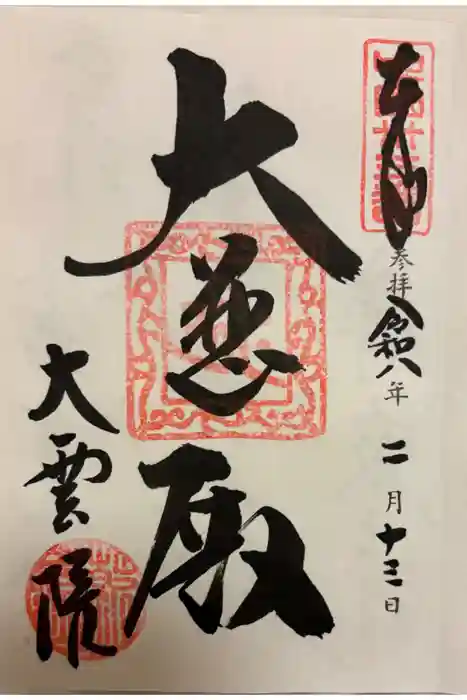 奉拝
参拝 令和八年 二月十三日
大慈殿
大雲院